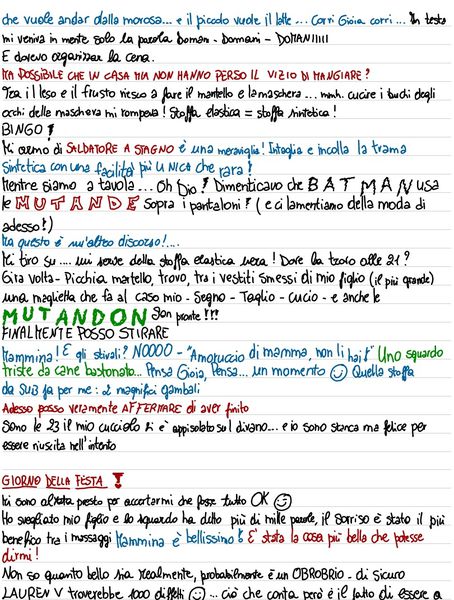 che vuole andar dalla morosa... e il piccolo vuole il latte... Corri Gioia corri... In testa
mi veniva in mente solo la parola Domani - Domani - DOMANIIIII
E dovevo organizzar la cena.
MA POSSIBILE CHE IN CASA MIA NON HANNO PERSO IL VIZIO DI MANGIARE?
Tra il leso e il frusto riesco a fare il martello e la maschera... mmh. cucire i buchi degli
occhi della maschera mi rompeva! Stoffa elastica = stoffa sintetica!
BINGO!
Mi armo di SALDATORE A STAGNO è una meraviglia! Intaglia e incolla la trama
Sintetica con una facilità più UNICA che rara!
Mentre siamo a tavola... Oh Dio! Dimenticavo che BATMAN usa
le MUTANDE Sopra i pantaloni! (e ci lamentiamo della moda di
adesso!)
Ma questo è un'altro discorso!....
Mi tiro su.... mi serve della stoffa elastica nera! Dove la trovo alle 21?
Gira volta - Picchia martello, trovo, tra i vestiti smessi di mio figlio (il più grande)
una maglietta che fa al caso mio - Segno - Taglio - cucio - e anche le
MUTANDON Son pronte!!!
FINALMENTE POSSO STIRARE
Mammina! E gli stivali? NOOOO - "Amoruccio di mamma, non li hai" Uno sguardo
triste da cane bastonato... Pensa Gioia, Pensa... un momento ☺ Quella stoffa
da SUB fa per me: 2 magnifici gambali
Adesso posso veramente AFFERMARE di aver finito
Sono le 23 il mio cucciolo si è appisolato sul divano... e io sono stanca ma felice per
essere riuscita nell'intento
GIORNO DELLA FESTA!
Mi sono alzata presto per accertarmi che fosse tutto OK ☺
Ho svegliato mio figlio e lo sguardo ha detto più di mille parole, il sorriso è stato il più
benefico tra i massaggi Mammina è bellissimo! E' stata la cosa più bella che potesse
dirmi!
Non so quanto bello sia realmente, probabilmente è un OBROBRIO - di sicuro
LAUREN V troverebbe 1000 difetti ☺... ciò che conta però è il fatto di essere a